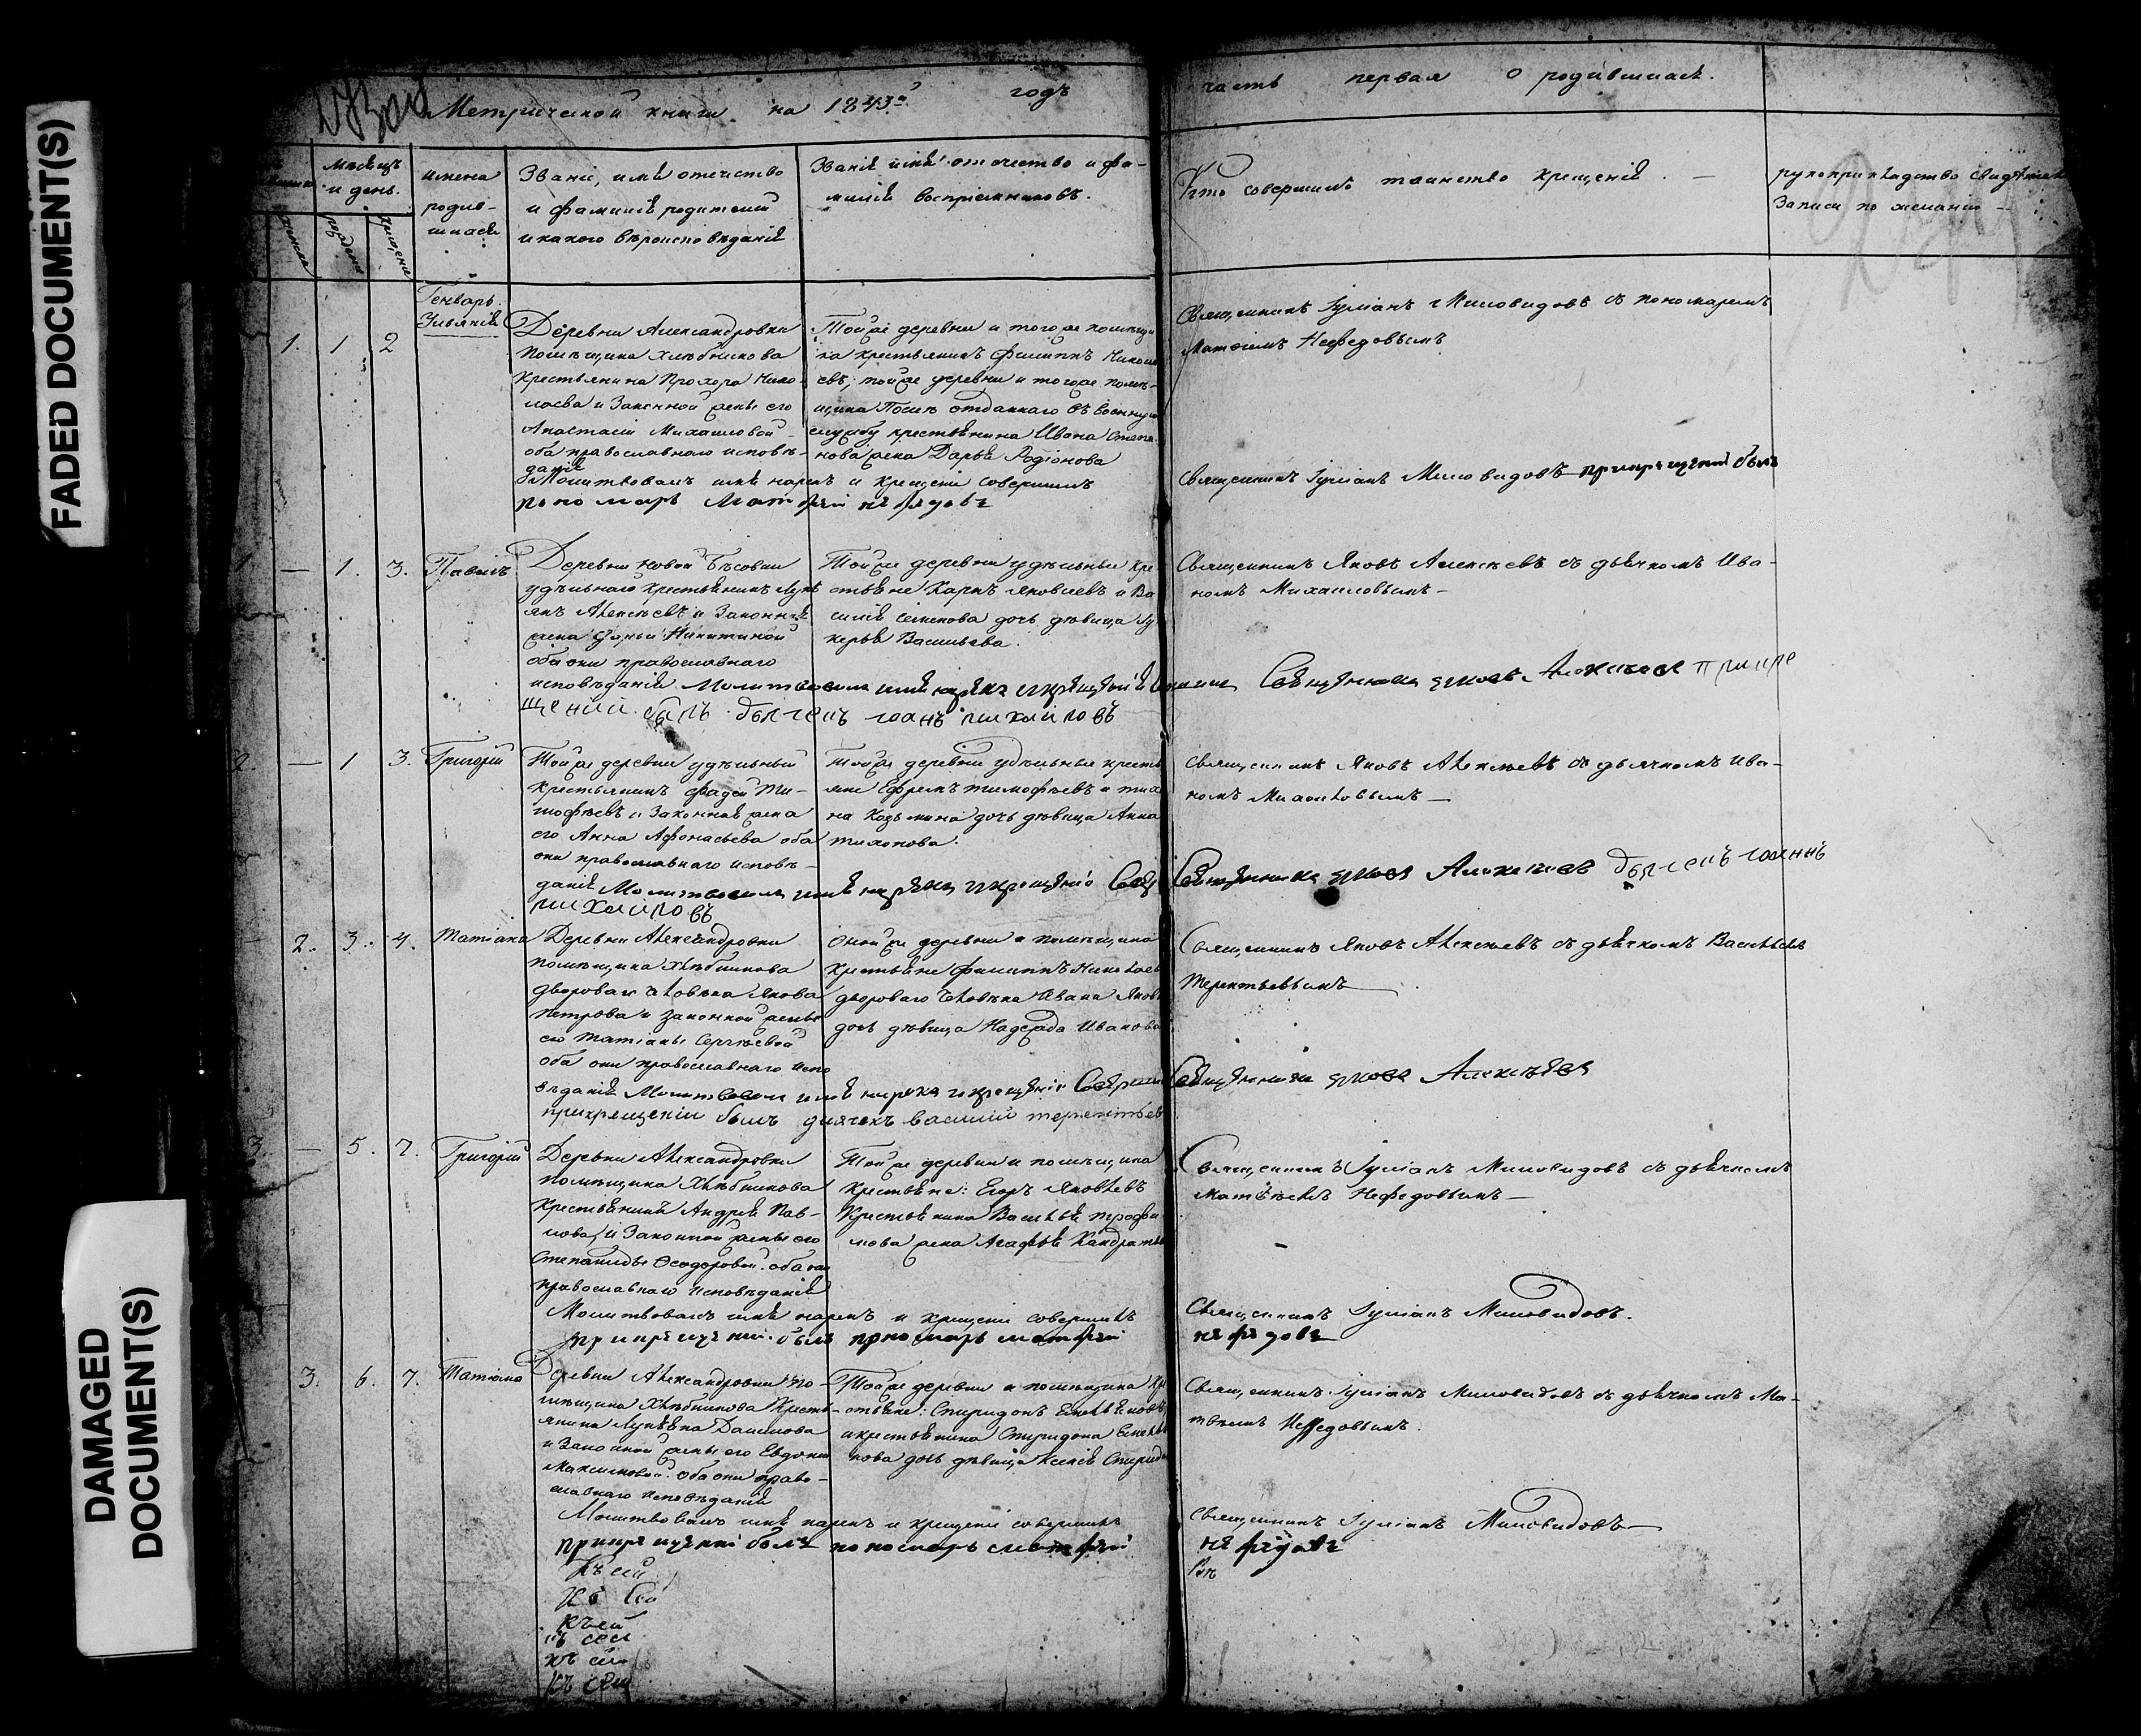 FADED DOCUMENT(S)
DAMAGED
DOCUMENT(S)
Метрической книги на 1843й годъ
часть первая о родившихся.
Мѣсяцъ
и день.
имена
родив-
шихся
Званіе, имя отечество
и фамилія родителей
и какого вѣроисповѣданія
Званіе имя отчество и фа-
милія воспріемниковъ.
Кто совершилъ таинство крещенія
рукоприкладство
записи по желанію
Генварь
1. 1 2
Деревни Александровки
помѣщика Хлѣбникова
крестьянина Прохора Нико-
лаева и законной жены его
Анастасіи Михайловой
оба православнаго исповѣ-
данія
Молитвовалъ имя нарекъ и крещеніе совершилъ
пономарь
Тойже деревни и тогоже помѣщи
ка крестьянинъ Филиппъ Никола
евъ; тойже деревни и тогоже помѣ-
щика отданнаго въ военную
службу крестьянина Ивана Степа
нова жена Дарья Родіонова
Священникъ Іуліанъ Миловидовъ съ пономаремъ
Нефедовымъ
Священникъ Іуліанъ Миловидовъ при крещеніи былъ
1 — 1. 3. Павелъ
Деревни Новой Бѣсовки
удѣльнаго крестьянинъ Лукь
янъ Алексѣевъ и законная
жена Никитиной
оба они православнаго
исповѣданія Молитвовалъ имя нарекъ и крещеніе
щеніи былъ дьячекъ Іоанъ Михайловъ
Тойже деревни удѣльные кре
стьяне Карпъ Яковлевъ и Ва
силія Семенова дочь дѣвица Лу
керья Васильева.
Священникъ Яковъ Алексѣевъ съ дьячкомъ Ива-
номъ Михайловымъ —
Священникъ Яковъ Алексѣевъ прикре
2. — 1 3. Григорій
Тойже деревни удѣльный
крестьянинъ Фадей Ти-
мофѣевъ и законная жена
его Анна Афонасьева оба
они православнаго исповѣ-
данія Молитвовалъ имя нарекъ и крещеніе
Михайловъ
Тойже деревни удѣльные кресть
яне Ефремъ Тимофѣевъ и Тихо
на Козьмина дочь дѣвица Анна
Тихонова.
Священникъ Яковъ Алексѣевъ съ дьячкомъ Ива-
номъ Михайловымъ —
Священникъ Яковъ Алексѣевъ дьячекъ Іоаннъ
2. 3. 4. Татіана
Деревни Александровки
помѣщика Хлѣбникова
дворовагo человѣка Якова
Петрова и законной жены
его Татіаны Сергѣевой
оба они православнаго испо
вѣданія Молитвовалъ имя нарекъ и крещеніе Соверши
прикрещеніи былъ дьячекъ Василій Терентьев
Онойже деревни и помѣщика
крестьяне Филиппъ Николаев
двороваго человѣка Ивана Яков
дочь дѣвица Надежда Иванова
Священникъ Яковъ Алексѣевъ съ дьячкомъ
Терентьевымъ
Священникъ Яковъ Алексѣевъ
3 — 5. 7. Григорій
Деревни Александровки
помѣщика Хлѣбникова
крестьянина Андрея Пав-
лова, и законной жены его
Степаниды Феодоровой. оба они
православнаго исповѣданія
Молитвовалъ имя нарекъ и крещеніе совершилъ
при крещеніи былъ пономарь Матфей
Тойже деревни и помѣщика
крестьяне: Егоръ Яковлевъ
Крестьянина Василья Трофи
мова жена Агафья Кандратье
Священникъ Іуліанъ Миловидовъ съ дьячкомъ
Нефедовымъ —
Священникъ Іуліанъ Миловидовъ.
нефедовъ
3. 6. 7. Татіана
Деревни Александровки по-
мѣщика Хлѣбникова кресть-
янина Лукьяна Данилова
и законной жены его Евдокіи
Максимовой. оба они право-
славнаго исповѣданія
Молитвовалъ имя нарекъ и крещеніе совершилъ
при крещеніи былъ пономарь Матфей
Тойже деревни и помѣщика кре
стьяне: Спиридонъ Емельяновъ
и крестьянина Спиридона Емелья
нова дочь дѣвица Ксенія Спиридо
Священникъ Іуліанъ Миловидовъ съ дьячкомъ Ма-
твѣемъ Нефедовымъ.
Священникъ Іуліанъ Миловидовъ —
нефедовъ
Къ сей
Къ сей
Къ сей
Къ сей